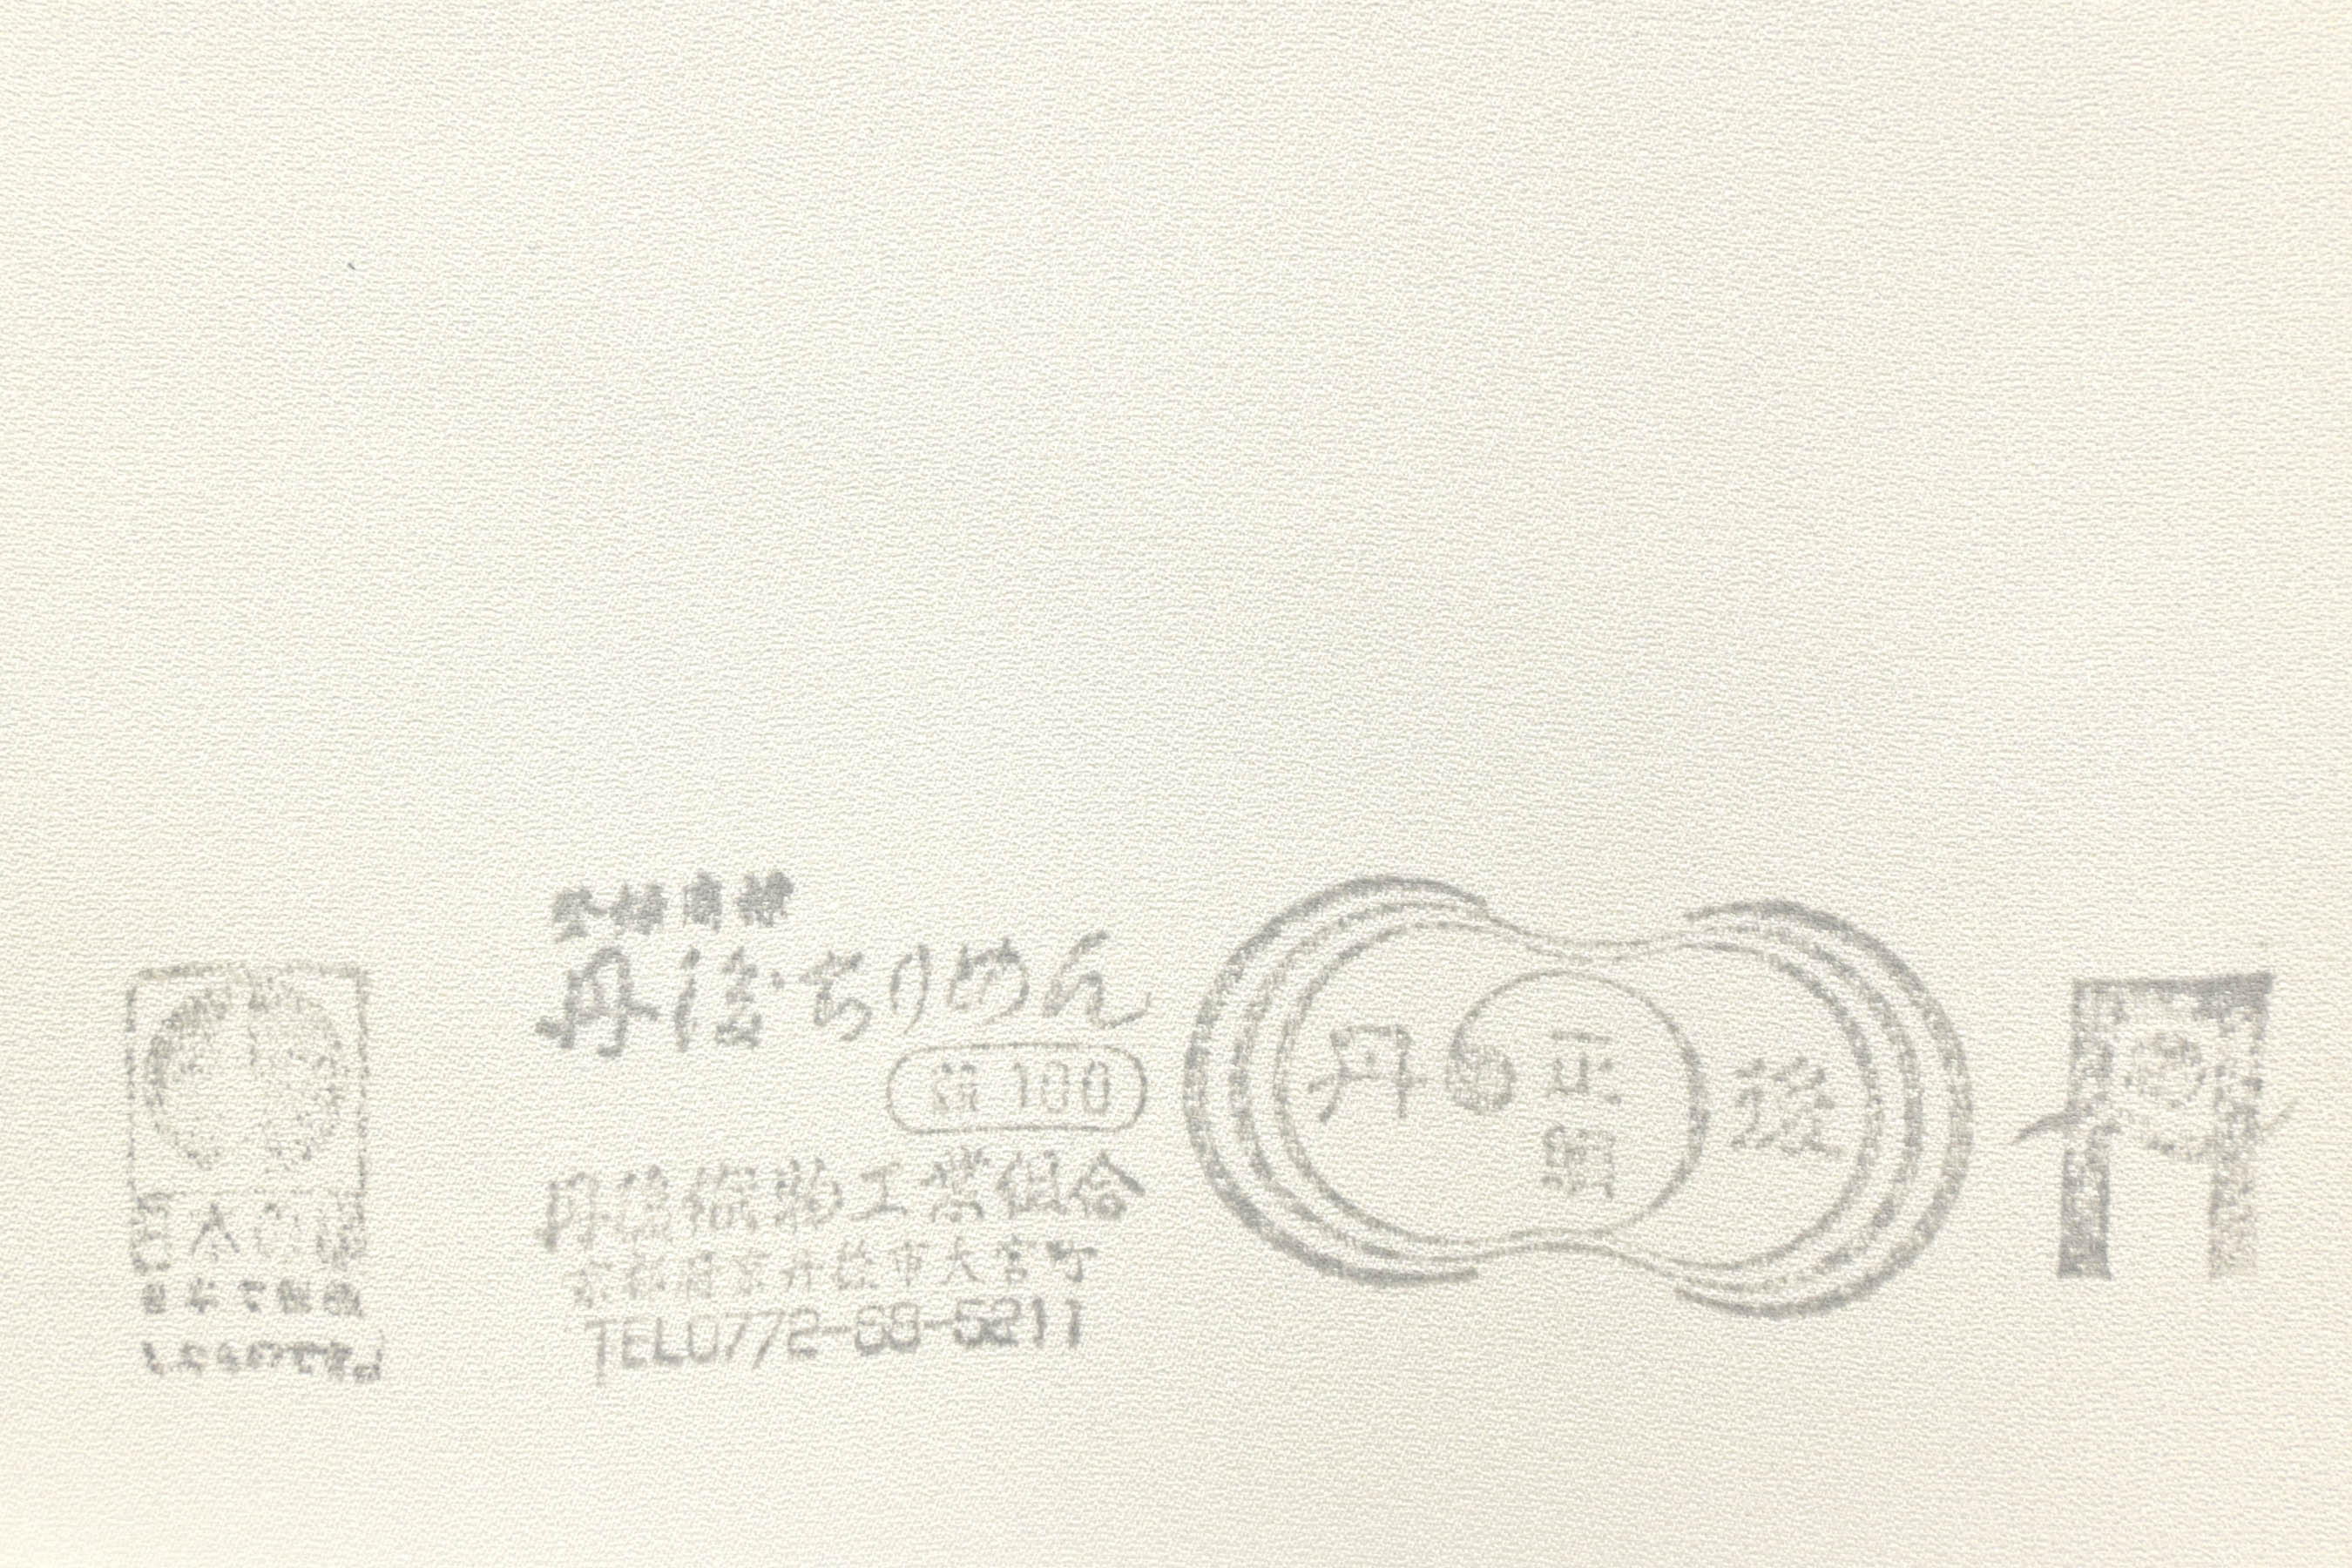 日本の絹
日本で製織
したものです
登録商標
丹後ちりめん
絹100
丹後織物工業組合
京都府京丹後市大宮町
TEL0772-68-5211
丹 正絹 後